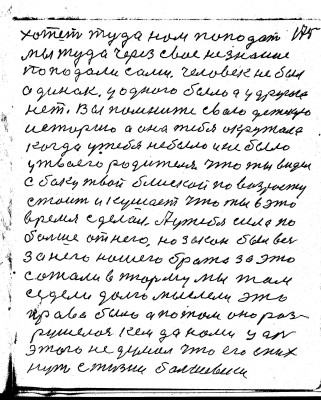 хотет туда нам попадат 175
мы туда через свое незнание
попадали сами. Человек не был
одинак, у одного было а у друга
нет. Вы помните свою детскую
историю а она тебя окружала
когда у тебя небыло и не было
у твоего родителя. Что ты видел
с боку твой блиской по возрасту
стоит и кушает что ты в это
время сделал. А у тебя сила по
болше от него, но закон был вез
за него нашего брата за это
сажали в тюрму мы там
сидели долго мыслели это
права было а потом оно раз-
рушелося кем да нами
этого не думал что его сних
нут с жизни балшевики